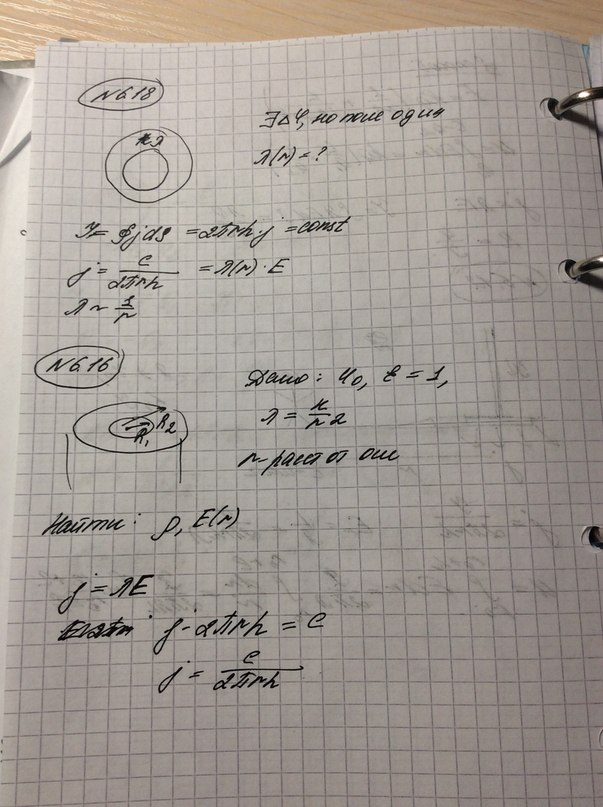 N 6.18
λ
∃ Δφ, но поле один
λ(r) = ?
J = ∮jdS = 2πrh·j = const
j = c/2πrh = λ(r)·E
λ ~ 1/r
N 6.16
R₁ R₂
Дано: U₀, ε = 1,
λ = k/r²
r - расст от оси
Найти: ρ, E(r)
j = λE
j · 2πrh = c
j = c/2πrh